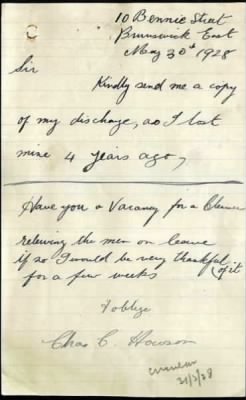 10 Bennie Street
Brunswick East
May 30th 1928
Sir
Kindly send me a copy
of my discharge, as I lost
mine 4 years ago,
Have you a Vacancy for a Cleaner
releiving the men on leave
if so I would be very thankful of it
for a few weeks
& oblige
Chas C. Howson
31/5/28